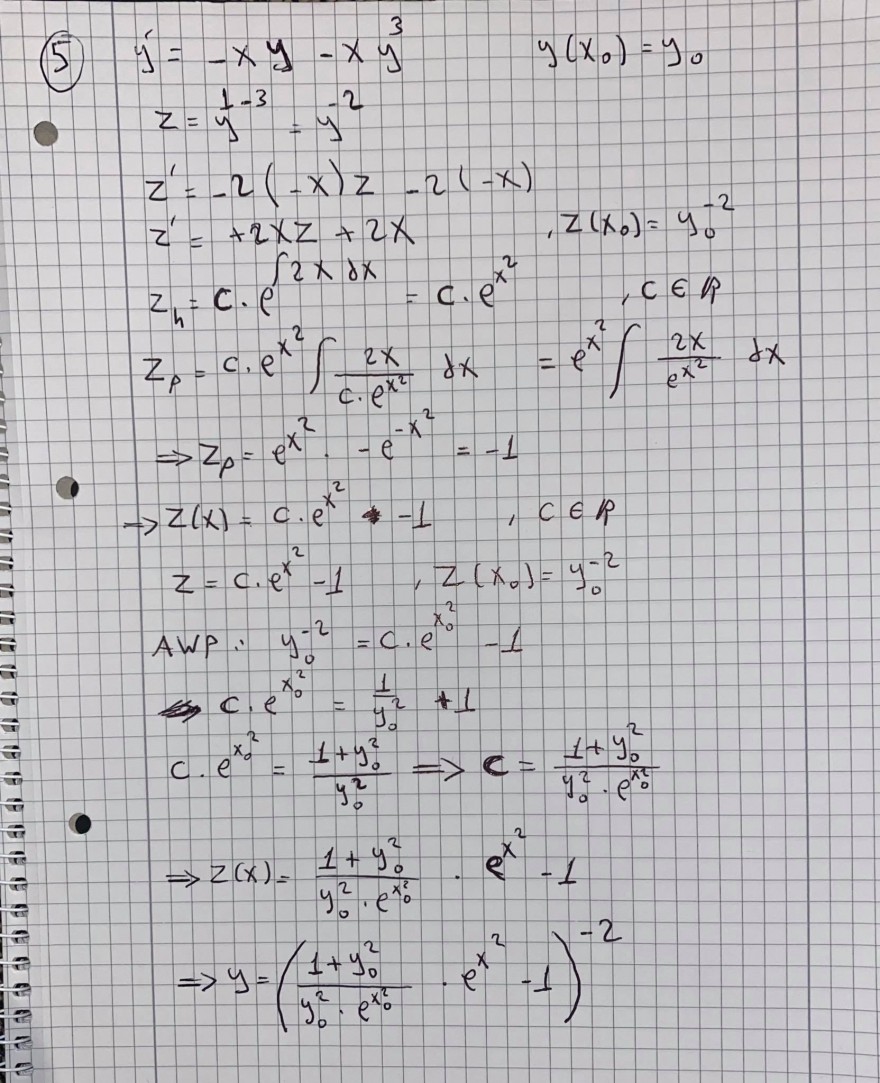 ⑤ y' = -xy - xy³ y(x₀) = y₀
z = y¹⁻³ = y⁻²
z' = -2(-x)z -2(-x)
z' = +2xz + 2x , z(x₀) = y₀⁻²
z_h = c · e^{∫2x dx} = c · e^{x²} , c ∈ ℝ
z_p = c · e^{x²} ∫ 2x/(c · e^{x²}) dx = e^{x²} ∫ 2x/e^{x²} dx
⇒ z_p = e^{x²} · -e^{-x²} = -1
→ z(x) = c · e^{x²} -1 , c ∈ ℝ
z = c · e^{x²} - 1 , z(x₀) = y₀⁻²
AWP : y₀⁻² = c · e^{x₀²} - 1
c · e^{x₀²} = 1/y₀² + 1
c · e^{x₀²} = (1+y₀²)/y₀² ⇒ c = (1+y₀²)/(y₀² · e^{x₀²})
⇒ z(x) = (1+y₀²)/(y₀² · e^{x₀²}) · e^{x²} - 1
⇒ y = ((1+y₀²)/(y₀² · e^{x₀²}) · e^{x²} - 1)⁻²